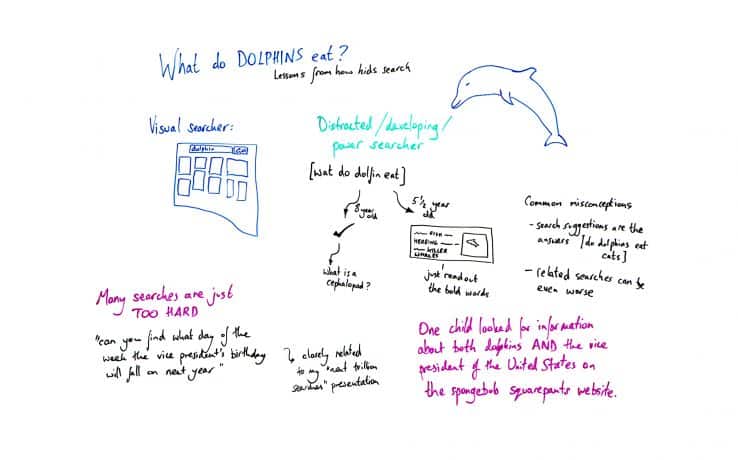 What do DOLPHINS eat?
Lessons from how kids search
Visual searcher:
dolphin
Distracted/developing/
power searcher
[wat do dolfin eat]
8 year
old
5 1/2 year
old
What is a
cephalopod?
FISH
HERRING
KILLER
WHALES
just read out
the bold words
Common misconceptions
- search suggestions are the
answers [do dolphins eat
cats]
- related searches can be
even worse
Many searches are just
TOO HARD
"can you find what day of the
week the vice president's birthday
will fall on next year"
closely related
to my "next trillion
searches" presentation
One child looked for information
about both dolphins AND the vice
president of the United States on
the spongebob squarepants website.